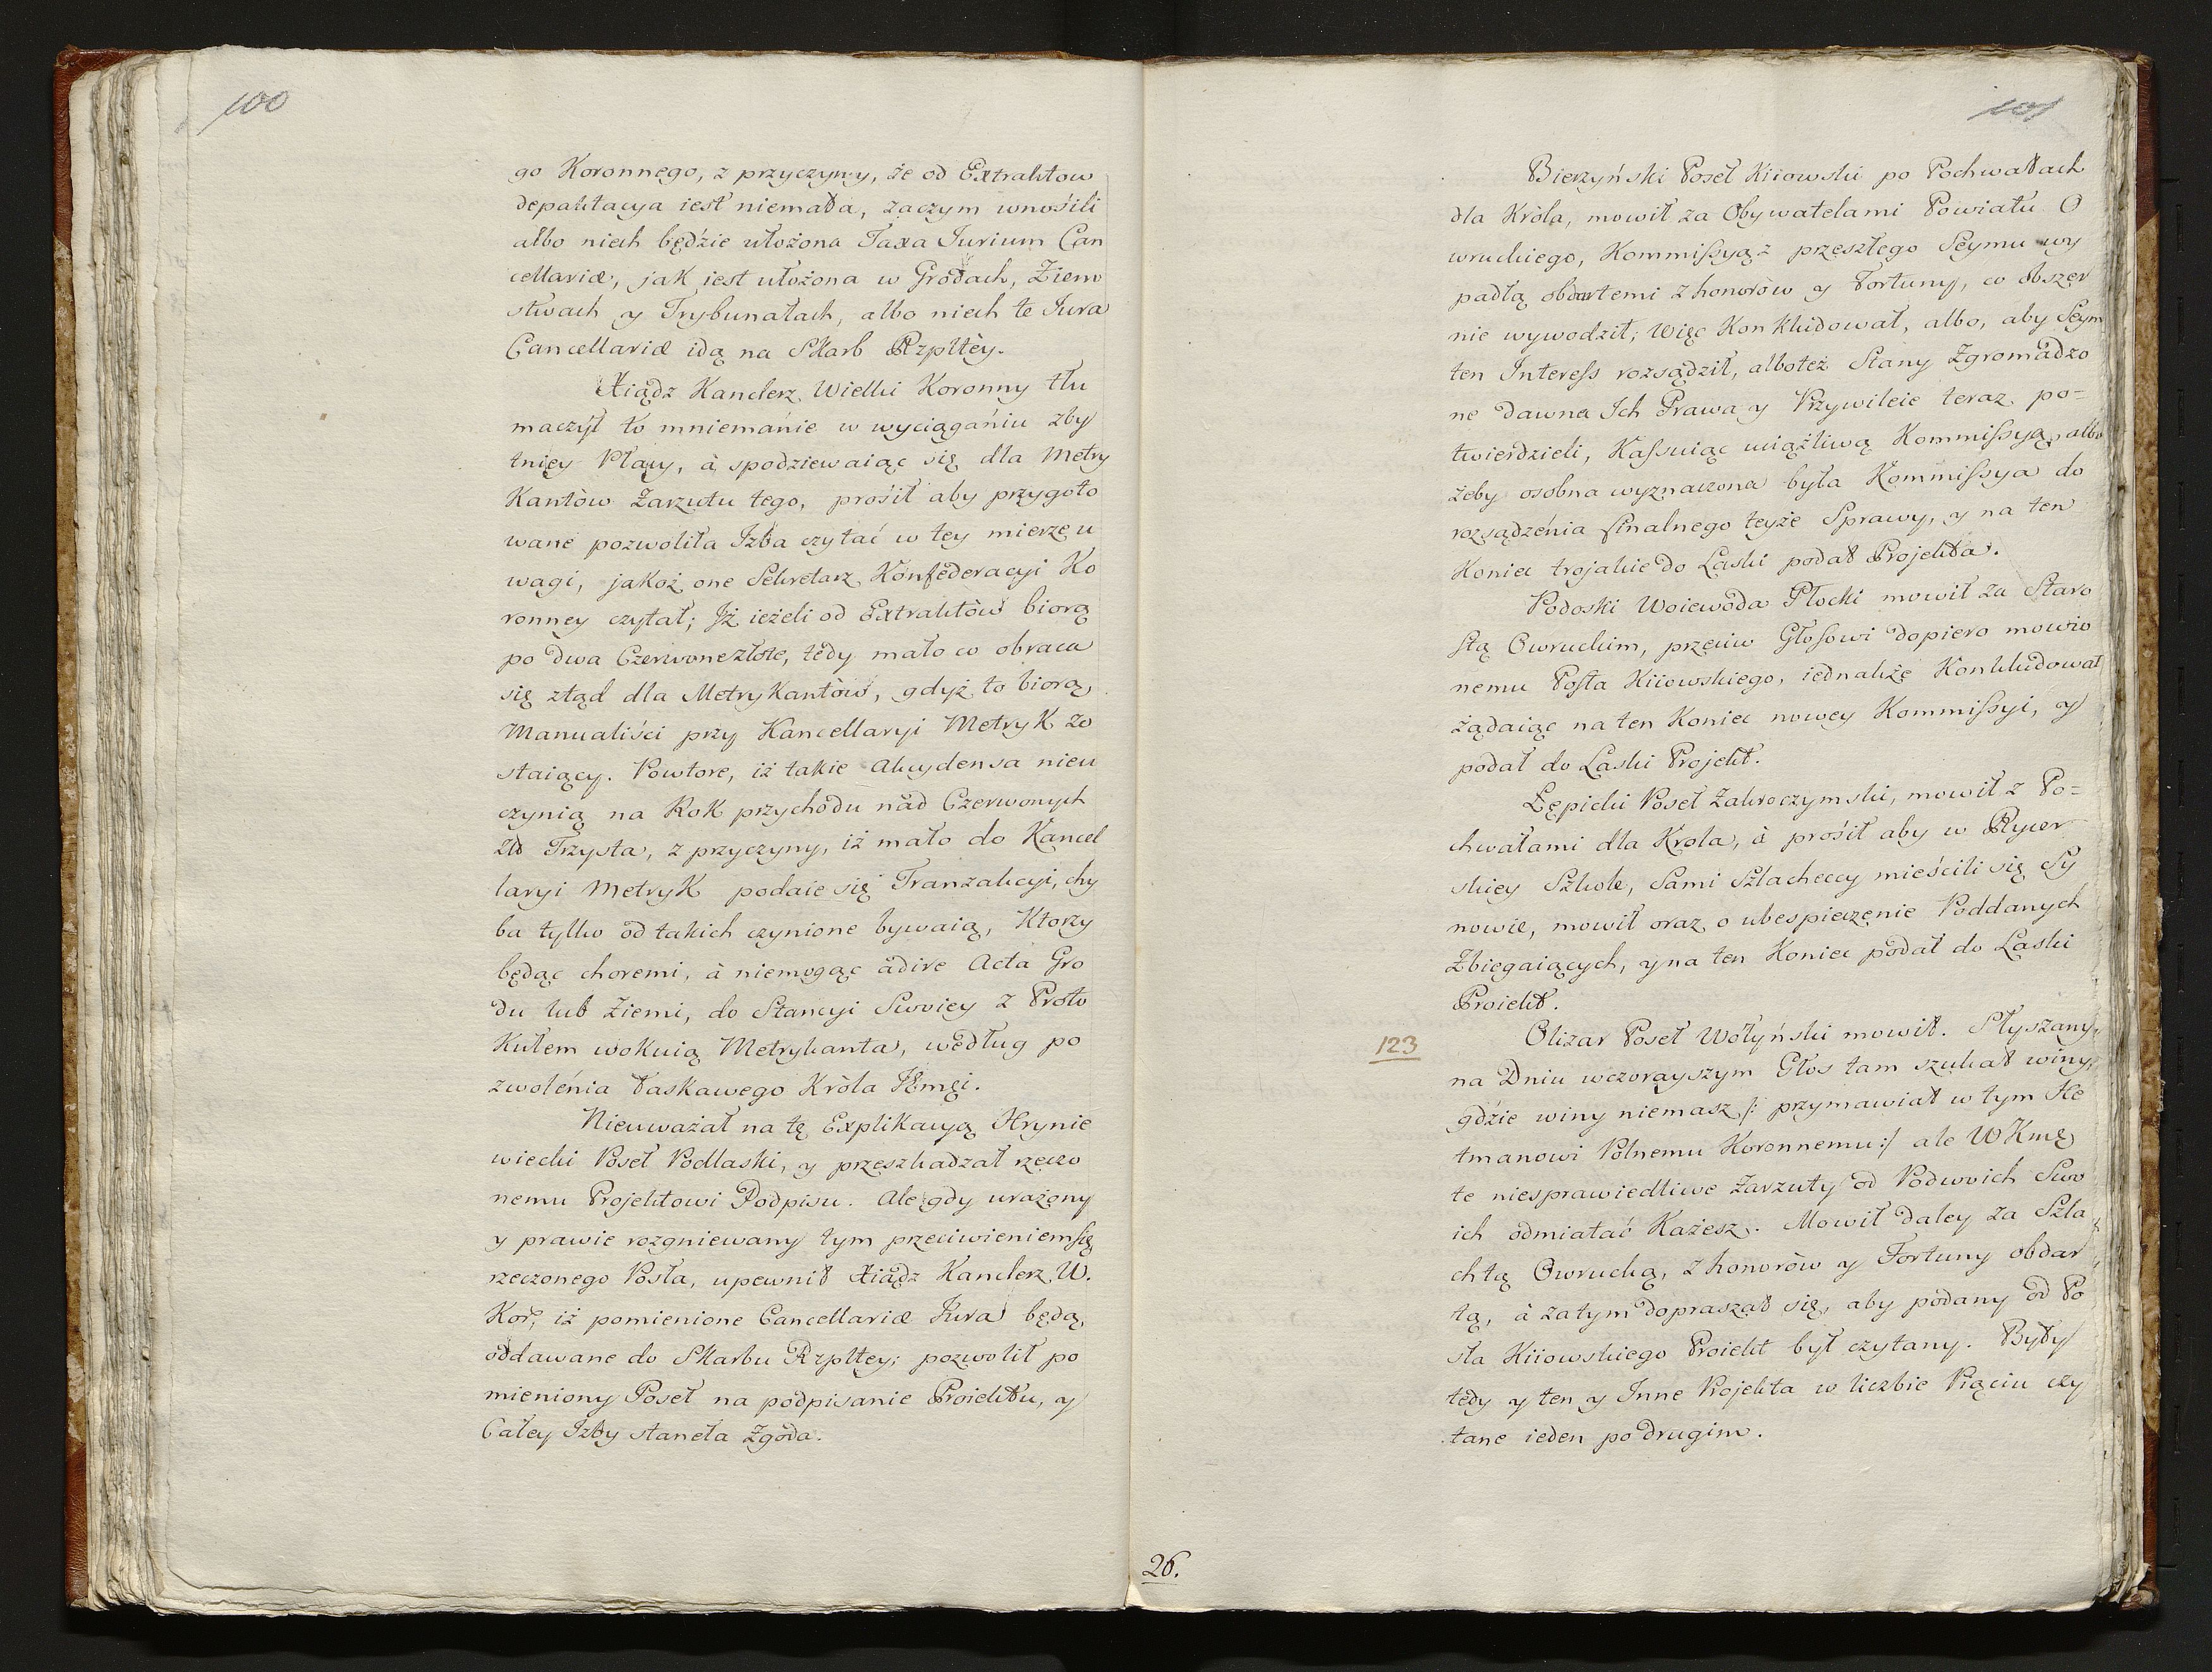 100
go Koronnego, z przyczyny, że od Extraktow
depaktacya iest niemała, zaczym wnosili
albo niech będzie ułożona Taxa Jurium Can
cellariæ, jak iest ułożona w Grodach, Ziem
stwach y Trybunałach, albo niech te Jura
Cancellariæ idą na Skarb Rzpltèy.
Xiądz Kanclerz Wielki Koronny tłu
maczył to mniemánie w wyciągániu zby
tnięy Płacy, à spodziewaiąc się dla Metry
Kantòw Zarzutu tego, prosił aby przygoto
wane pozwoliła Jzba czytać w tey mierze u
wagi, jakoż one Sekretarz Konfederacyi Ko
ronney czytał; Jż ieżeli od Extraktòw biorą
po dwa Czerwone złote, tedy mało co obraca
się ztąd dla MetryKantòw, gdyż to biorą,
Manualiści przy Kancellaryi MetryK zo
staiący. Powtore, iż takie Akcydensa nieu
czynią na RoK przychodu nad Czerwonych
Zł Trzysta, z przyczyny, iż mało do Kancel
laryi MetryK podaie się Tranzakcyi, chy
ba tylko od takich czynione bywaią, Ktorzy
będąc choremi, à niemogąc adire Acta Gro
du lub Ziemi, do Stancyi Swoiey z Proto
Kułem wokuią Metrykanta, według po
zwolénia łaskawego Kròla JEmęi.
Nieuważał na tę Explikacyą Hrynie
wiecki Poseł Podlaski, y przeszkadzał rzeczo
nemu Projektowi Podpisu. Ale gdy urażony
y prawie rozgniewany tym przeciwieniem się
rzeczonego Posła, upewnił Xiądz Kanclerz W.
Kor, iż pomienione Cancellariæ Jura będą,
oddawane do Skarbu Rzpltey; pozwolił po
mieniony Poseł na podpisanie Proiektu, y
Całey Jzby staneła Zgoda.
26.
101
Bierzyński Poseł Kiiowski po Pochwałach
dla Kròla, mowił za Obywatelami Powiatu O
wruckiego, Kommissyą z przeszłego Seymu wy
padłą obdartemi z honoròw y Fortuny, co obszer
nie wywodził; Więc Konkludował, albo, aby Seym
ten Interess rozsądził, albo też Stany Zgromadzo
ne dawna Jch Prawa y Przywileie teraz po=
twierdzieli, Kassuiąc uciążliwą Kommissyą, albo
żeby osobna wyznaczona była Kommissya do
rozsądzénia finalnego teyże Sprawy, y na ten
Koniec trojakie do Laski podał Projekta.
Podoski Woiewoda Płocki mowił za Staro
stą Owruckim, przeciw Głosowi dopiero mowio
nemu Posła Kiiowskiego, iednakże Konkludował
żądaiąc na ten Koniec nowey Kommissyi, y
podał do Laski Projekt.
Łępicki Poseł Zakroczymski, mowił z Po=
chwałami dla Krola, à prosił aby w Rycer
skiey Szkole, Sami Szlacheccy mieścili się Sy
nowie, mowił oraz o ubespieczenie Poddanych
Zbiegaiących, y na ten Koniec podał do Laski
Proiekt.
123
Olizar Poseł Wołyński mowił. Słyszany
na Dniu wczorayszym Głos tam szukał winy,
gdzie winy niemasz /: przymawiał w tym He
tmanowi Polnemu Koronnemu :/ ale WKmę
te niesprawiedliwe Zarzuty od Podwoich Swo
ich odmiatać Każesz. Mowił daley za Szla
chtą Owrucką, z honoròw y Fortuny obdar
tą, à zatym dopraszał się, aby podany od Po
sła Kiiowskiego Proiekt był czytany. Były
tedy y ten y Jnne Projekta w liczbie Pięciu czy
tane ieden po drugim.